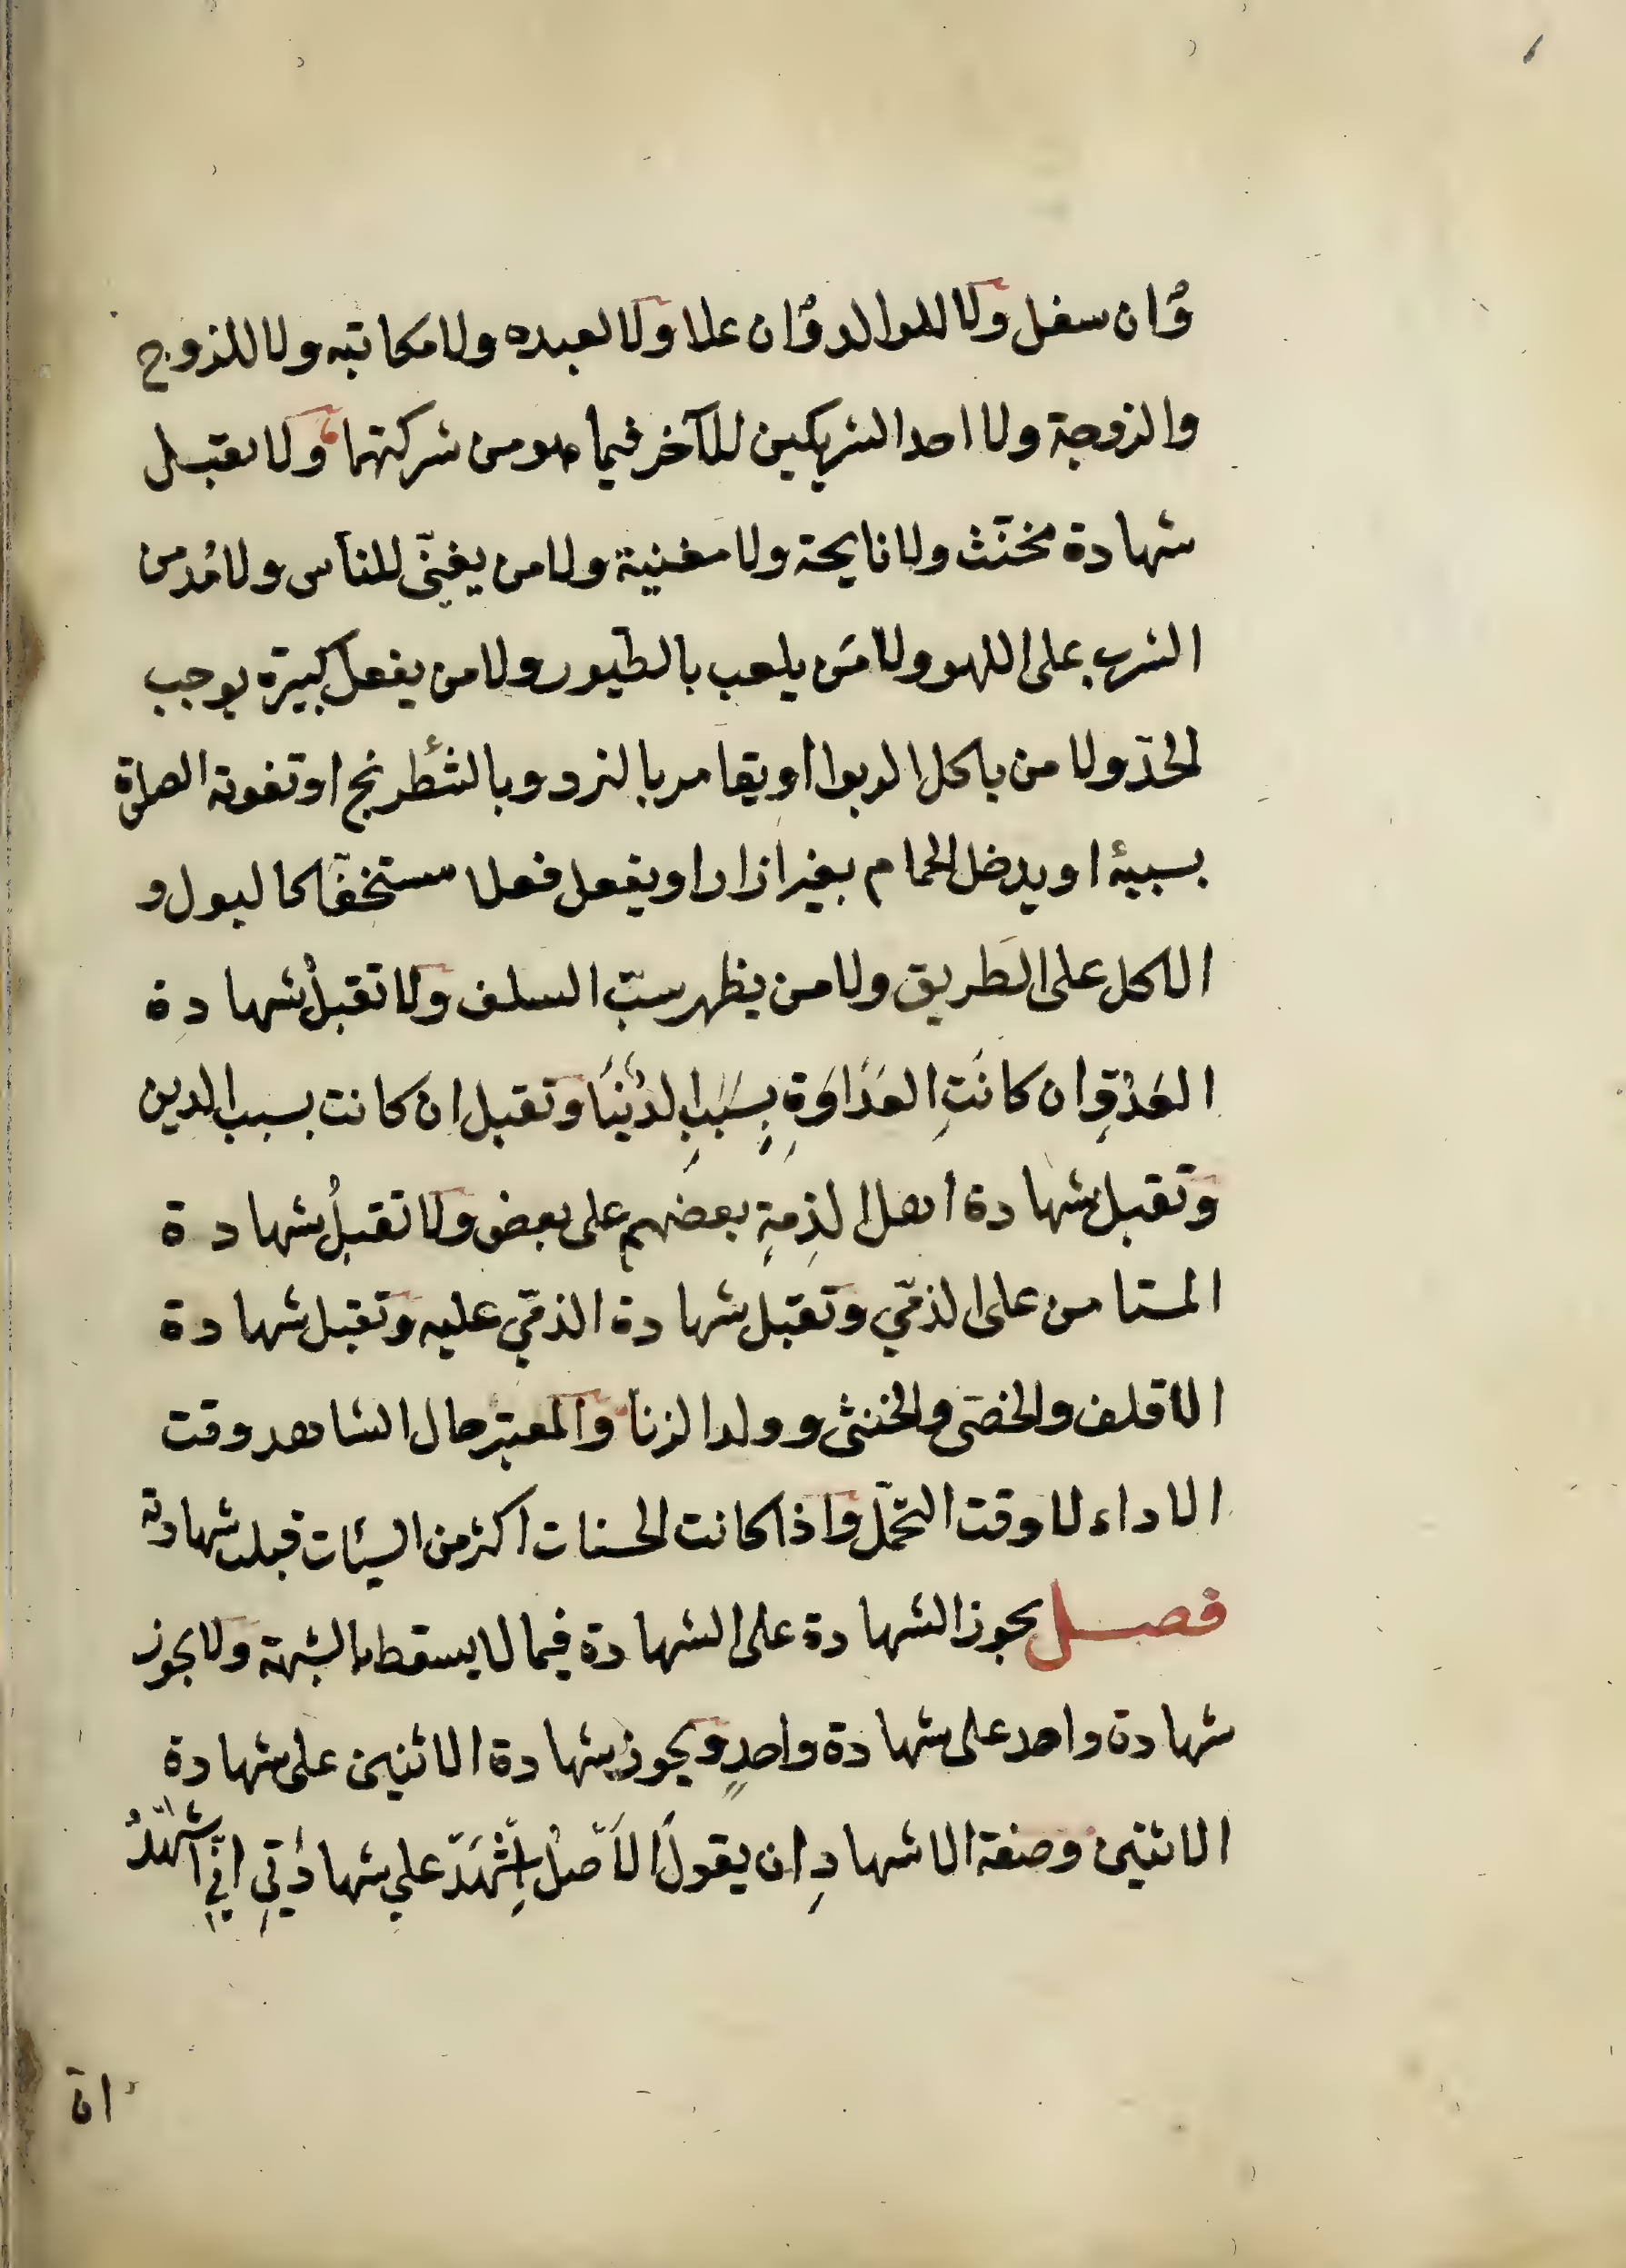 وان سفل ولا للوالد وان علا ولا لعبده ولا مكاتبه ولا للزوج
والزوجة ولا احد الشريكين للآخر فيما هو من شركتهما ولا تقبل
شهادة مخنّث ولا نايحة ولا مغنية ولا من يغنّى للناس ولا مُدمن
الشرب على اللهو ولا مَن يلعب بالطّيور ولا من يفعل كبيرة يوجب
الحدّ ولا من ياكل الربوا او يقامر بالنرد وبالشّطرنج او تفوته الصلوة
بسببه او يدخل الحمام بغير ازار او يفعل فعلا مستخفّا كالبول و
الاكل على الطَريق ولا من يظهر سبّ السلف ولا تقبلُ شهادة
العَدُوِّ ان كانَتِ العَدَاوَةِ بِسَبَبِ الدُنيَا وتقبل ان كانت بسبب الدين
وتقبل شهادة اهل الذِمةِ بعضهم على بعض ولا تقبلُ شهادة
المستامن على الذمّي وتقبل شهادة الذمّي عليه وتقبل شهادة
الاقلف والخصّى والخنثى وولد الزنا والمعتبر حال الشاهد وقت
الاداء لا وقت التحمّل واذا كانت الحسنات اكثر من السيئات قبلت شهادته
فصل يجوز الشهادة على الشهادة فيما لا يسقط بالشبهة ولا يجوز
شهادة واحد على شهادة واحدٍ ويجوز شهادة الاثنين على شهادة
الاثنين وصفة الاشهادِ ان يقولَ الاَصْلُ اِشْهَدْ على شهادَتِي انّي اشهَدُ
ان